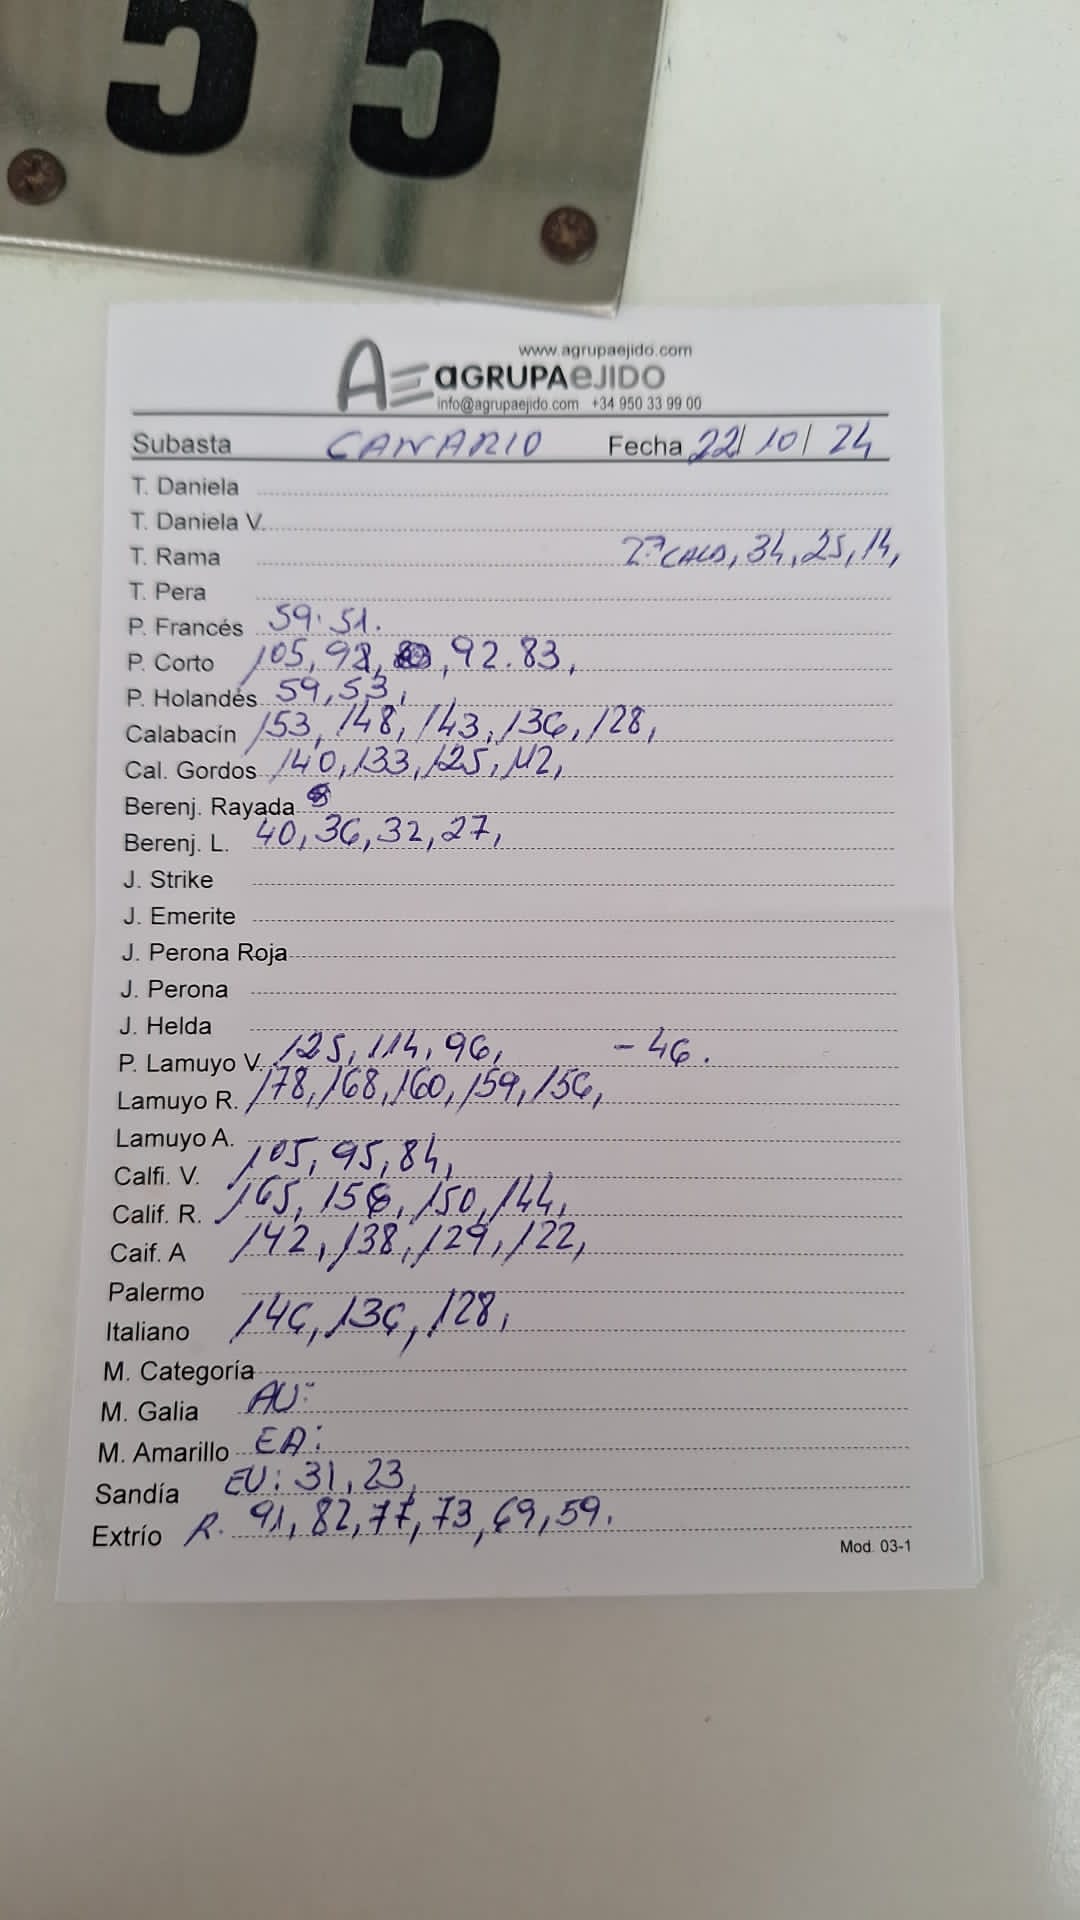 55
www.agrupaejido.com
AE aGRUPAeJIDO
info@agrupaejido.com +34 950 33 99 00
Subasta CANARIO Fecha 22/ 10/ 24
T. Daniela
T. Daniela V.
T. Rama 2ª CALA, 34, 25, 14,
T. Pera
P. Francés 59. 51.
P. Corto 105, 98, , 92. 83,
P. Holandés 59, 53,
Calabacín 153, 148, 143, 136, 128,
Cal. Gordos 140, 133, 125, 112,
Berenj. Rayada
Berenj. L. 40, 36, 32, 27,
J. Strike
J. Emerite
J. Perona Roja
J. Perona
J. Helda
P. Lamuyo V. 125, 114, 96, - 46.
Lamuyo R. 178, 168, 160, 159, 156,
Lamuyo A.
Calfi. V. 105, 95, 84,
Calif. R. 165, 156, 150, 144,
Caif. A 142, 138, 129, 122,
Palermo
Italiano 146, 136, 128,
M. Categoría
M. Galia AU:
M. Amarillo EA:
Sandía EU: 31, 23,
Extrío R. 91, 82, 77, 73, 69, 59.
Mod. 03-1